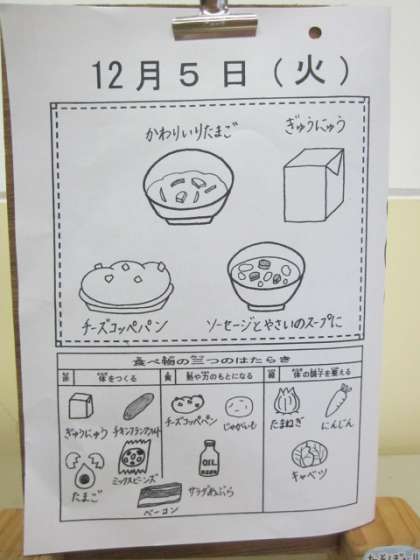 12月5日(火)
かわりいりたまご
ぎゅうにゅう
チーズコッペパン
ソーセージとやさいのスープに
食べ物の三つのはたらき
赤 体をつくる
黄 熱や力のもとになる
緑 体の調子を整える
ぎゅうにゅう
チキンフランクフルト
チーズコッペパン
じゃがいも
たまねぎ
にんじん
たまご
ミックスビーンズ
OIL
サラダあぶら
キャベツ
ベーコン